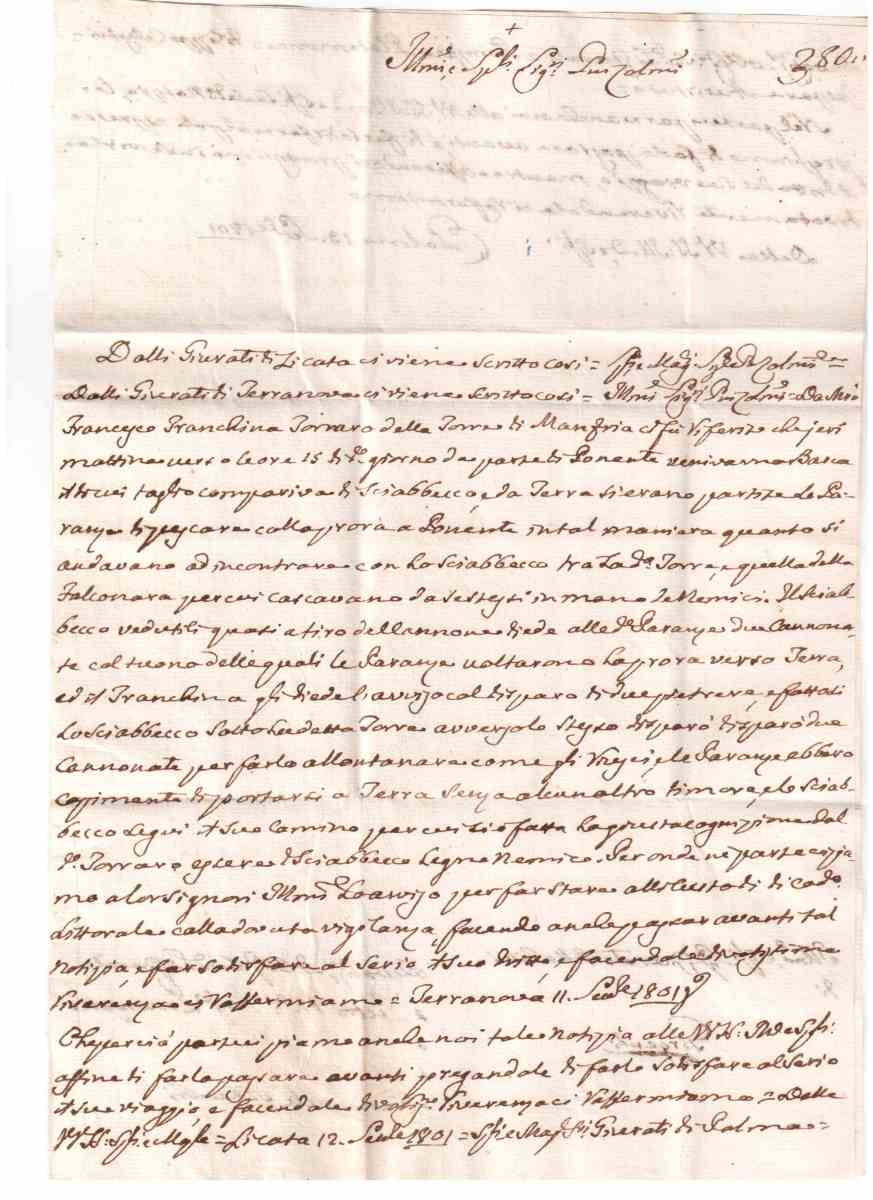 +
Illmi, e Spli Sigri Pnı Colmi
380
Dalli Giurati di Licata ci viene scritto così =
Dalli Giurati di Terranova ci viene scritto così = Illmi Sigri Da Mro
Francesco Franchina Torraro della Torre di Manfria ci fù riferito che jeri
mattina verso le ore 15 di do giorno da parte di Ponente veniva una Barca
il di cui taglio compariva di Sciabbecco, e da Terra si erano partite le Pa-
ranze di pescare colla prora a Ponente in tal maniera quanto si
andavano ad incontrare con lo Sciabbecco tra la da Torre, e quella della
Falconara per cui cascavano da se stessi in mano de Nemici. Il Sciab-
becco vedutili quasi a tiro del Cannone diede alle de Paranze due Cannona-
te col suono delle quali le Paranze voltarono la prora verso Terra,
ed il Franchina gli diede l'avviso col disparo di due petrere, e fattasi
lo Sciabbecco sotto la detta Torre avverso lo stesso disparò disparò due
Cannonate per farlo allontanare come gli riuscì, e le Paranze ebbero
capimento di portarsi a Terra senza alcun altro timore, e lo Sciab-
becco seguì il suo Camino per cui si è fatta la giusta cognizione dal
do Torraro essere il Sciabbecco legno Nemico. Per onde ne partecipia-
mo a lor Signori Illmi L'avviso per far stare alli Custodi di codo
Littorale colla dovuta vigilanza, facendo anche passar avanti tal
Notizia, e far sodisfare al Serio il suo dritto, e facendole divotissima
riverenza ci raffermiamo = Terranova 11. Sette 1801
Che perciò partecipiamo anche noi tale Notizia alle VV. SS.
affine di farla passare avanti pregandole di farlo sodisfare al Serio
il suo viaggio, e facendole divotma riverenza ci raffermiamo = Delle
VV. SS. = Licata 12. Sette 1801 = Giurati di Palma =